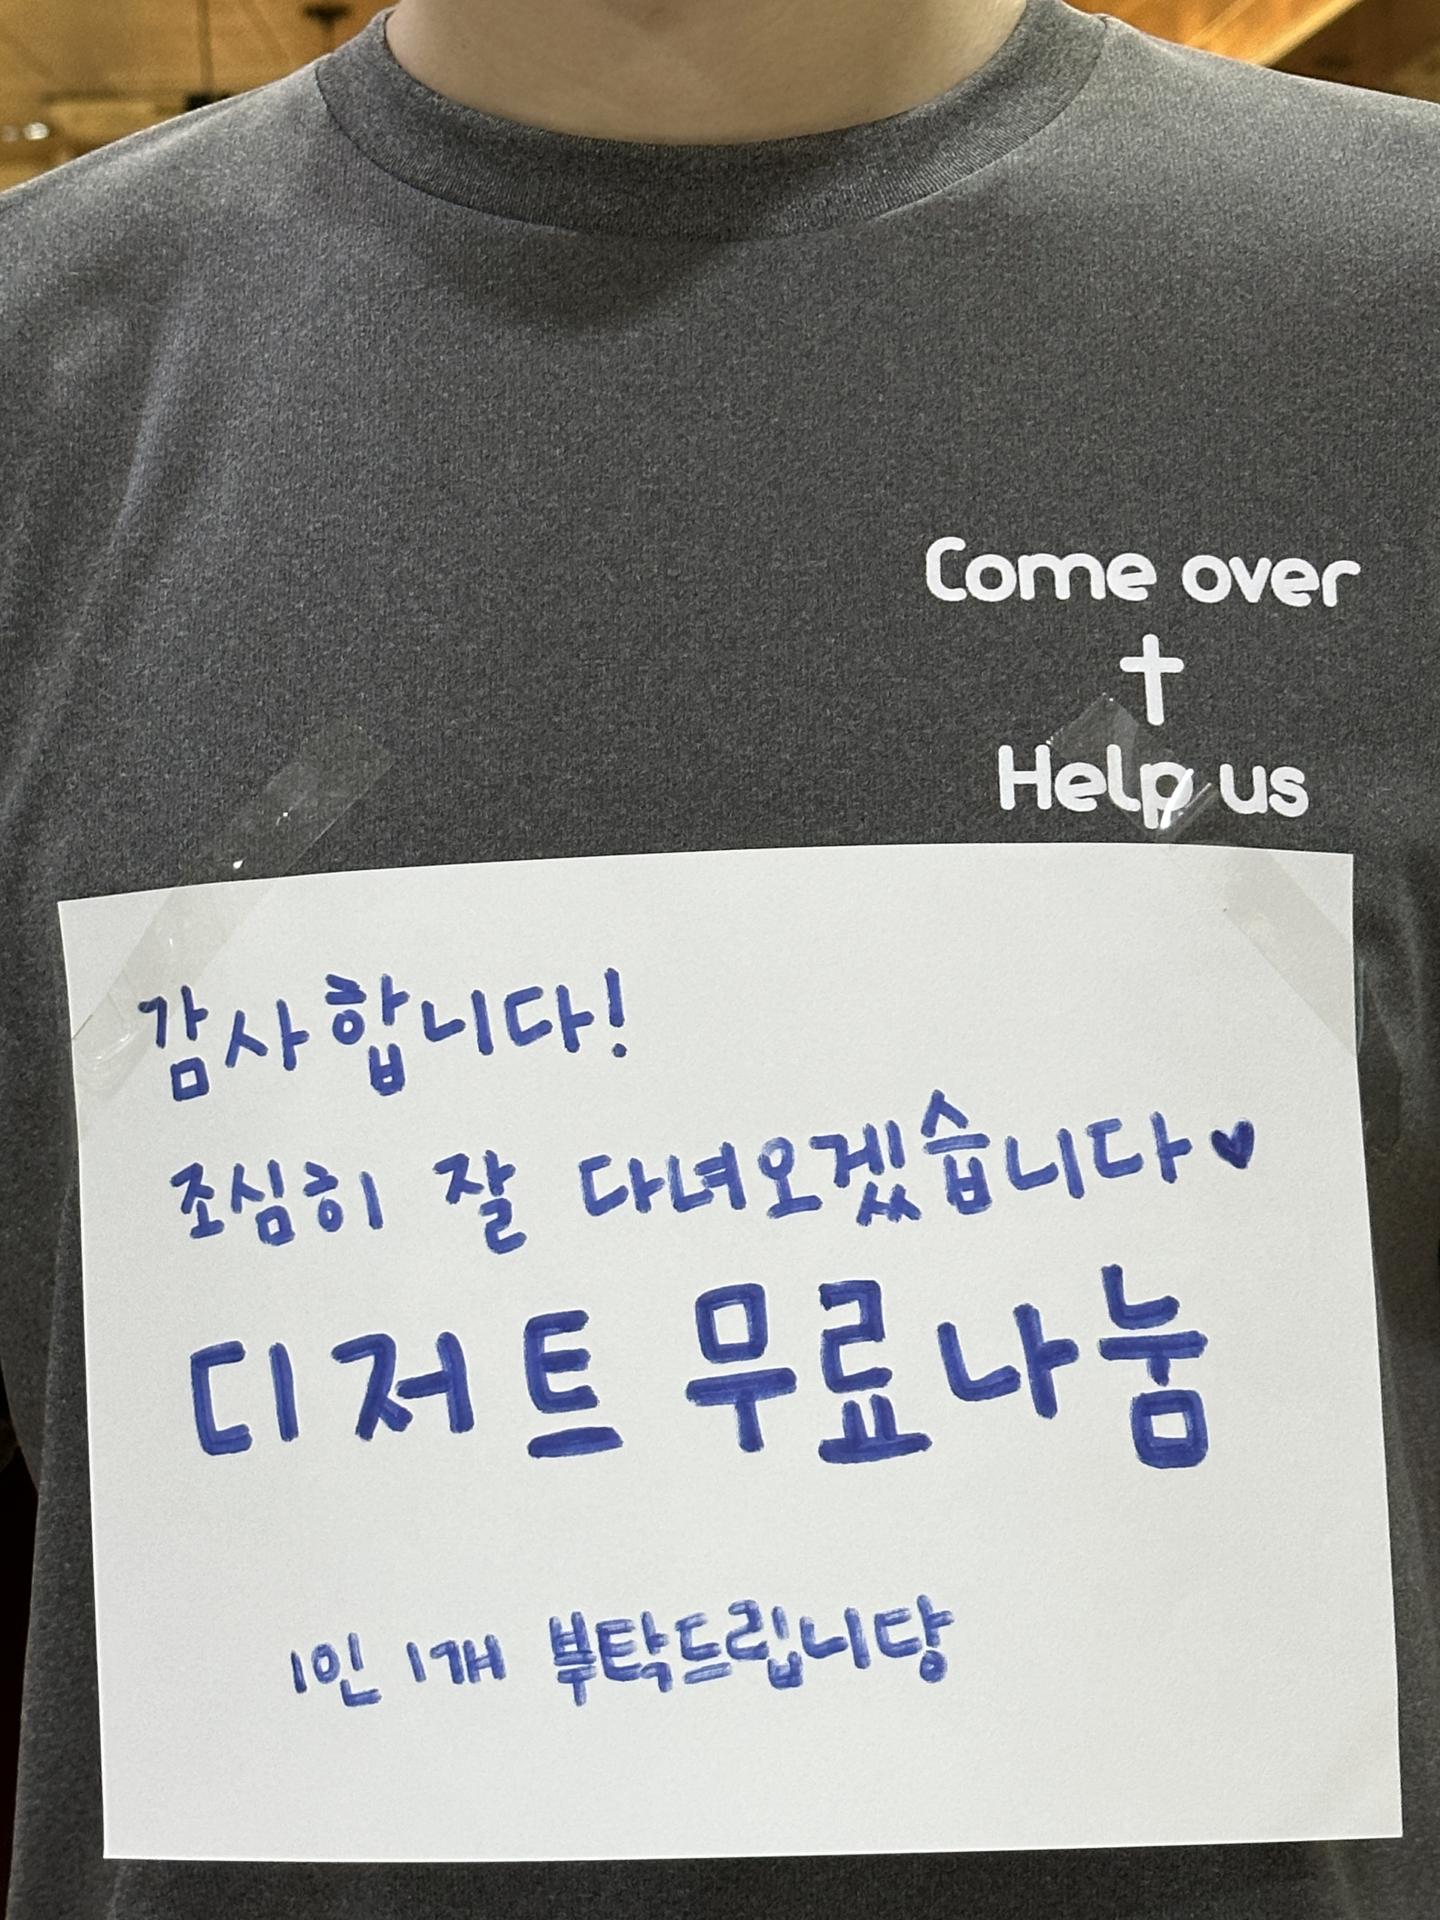 Come over
Help us
감사합니다!
조심히 잘 다녀오겠습니다♥
디저트 무료나눔
1인 1개 부탁드립니당